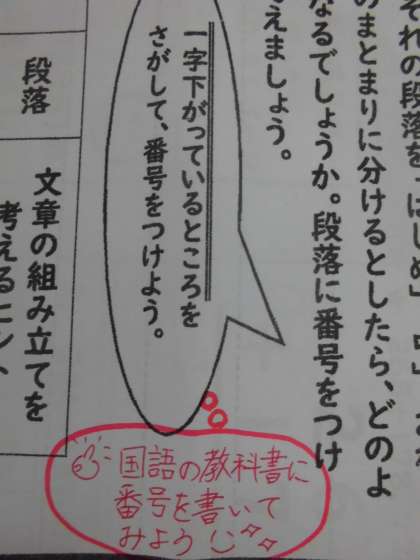 それの段落を「はじめ」「中」
のまとまりに分けるとしたら、どのよ
なるでしょうか。段落に番号をつけ
えましょう。
一字下がっているところを
さがして、番号をつけよう。
段落
文章の組み立てを
考えるヒント
国語の教科書に
番号を書いて
みよう